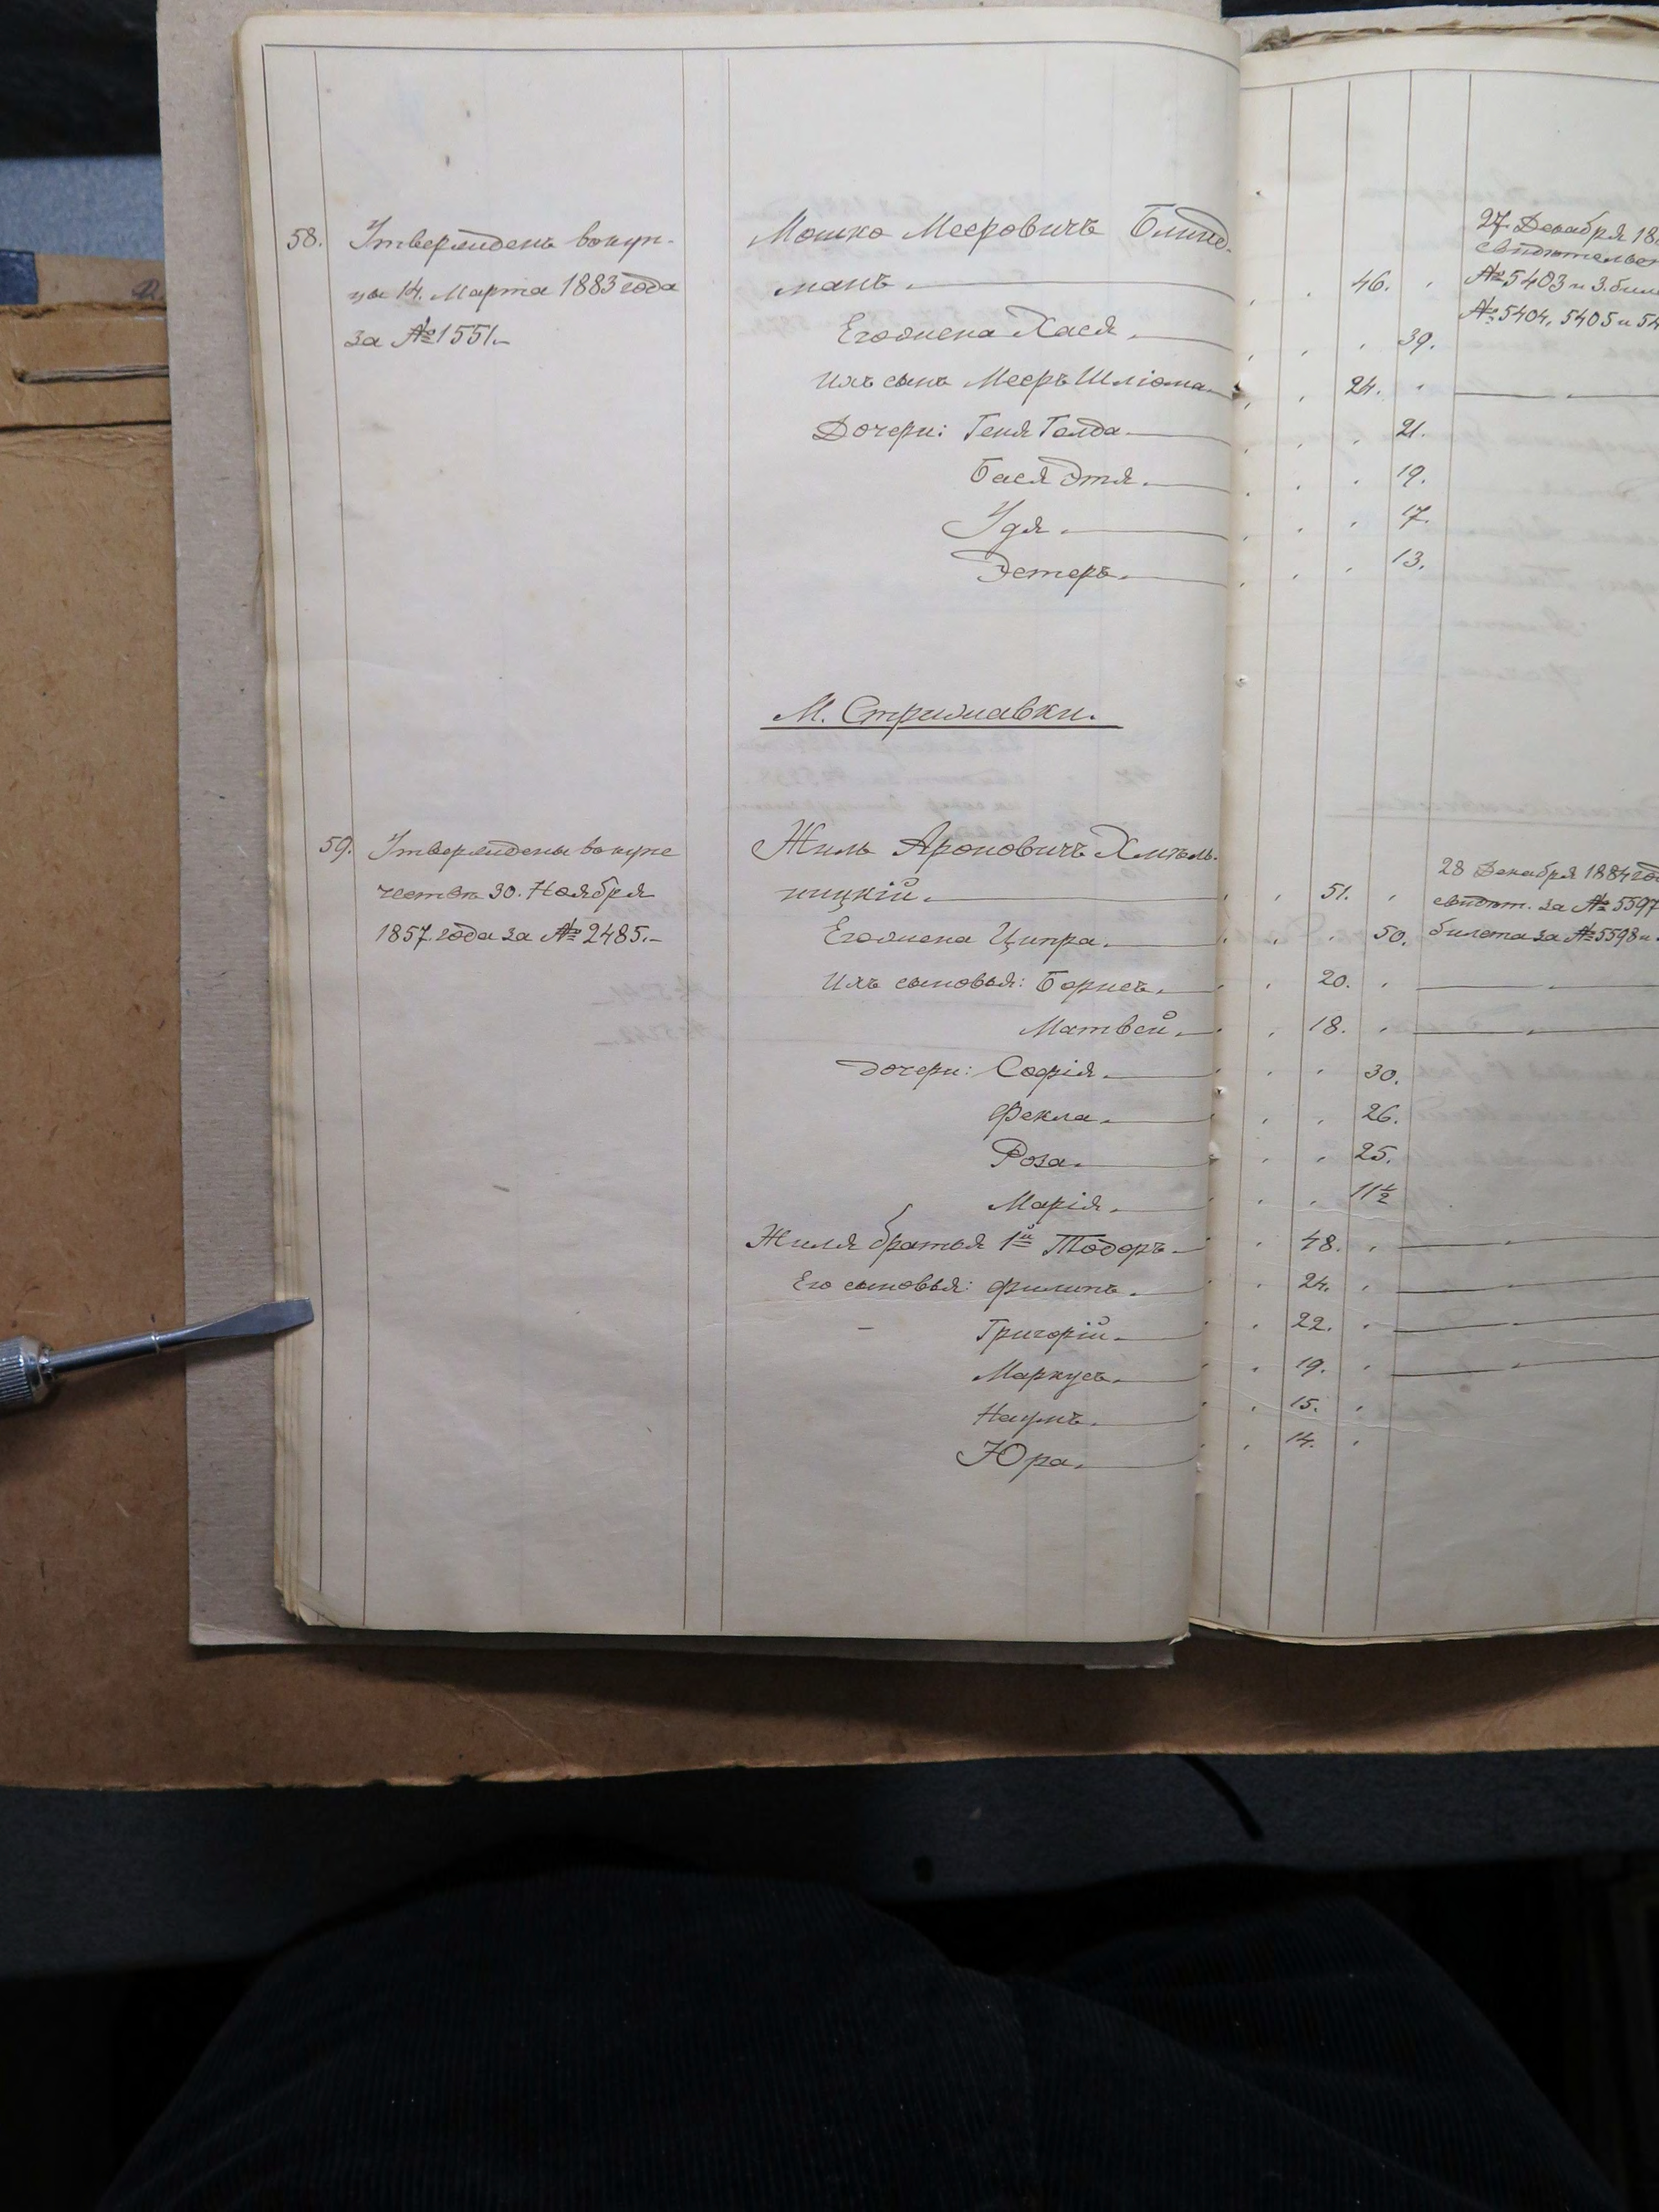 58. Утвержденъ вокуп-
цы 14. Марта 1883 года
за №1551.-
Мошко Мееровичъ Блинд-
манъ. 46.
Егожена Хася. 39.
Ихъ сынъ Мееръ Шліома 24.
Дочери: Геня Голда 21.
Бася Этя. 19.
Удя. 17.
Эстеръ. 13.
27 Декабря 18
№5403 и 3. бил
№5404, 5405 и 54
М. Стрижавки.
59. Утверждены вокупе
чество 30. Ноября
1857 года за № 2485.-
Жиль Ароновичъ Хмѣль-
ницкій. 51.
Егожена Ципра. 50.
Ихъ сыновья: Борисъ. 20.
Матвей. 18.
дочери: Софія. 30.
Фекла. 26.
Роза. 25.
Марія. 11½
Жиля братья 1й Тодоръ 48.
Его сыновья: Филипъ. 24.
Григорій. 22.
Маркусъ. 19.
Наумъ. 15.
Юра. 14.
28 Декабря 1884 год
свидѣт. за № 5597
билета за №5598 и